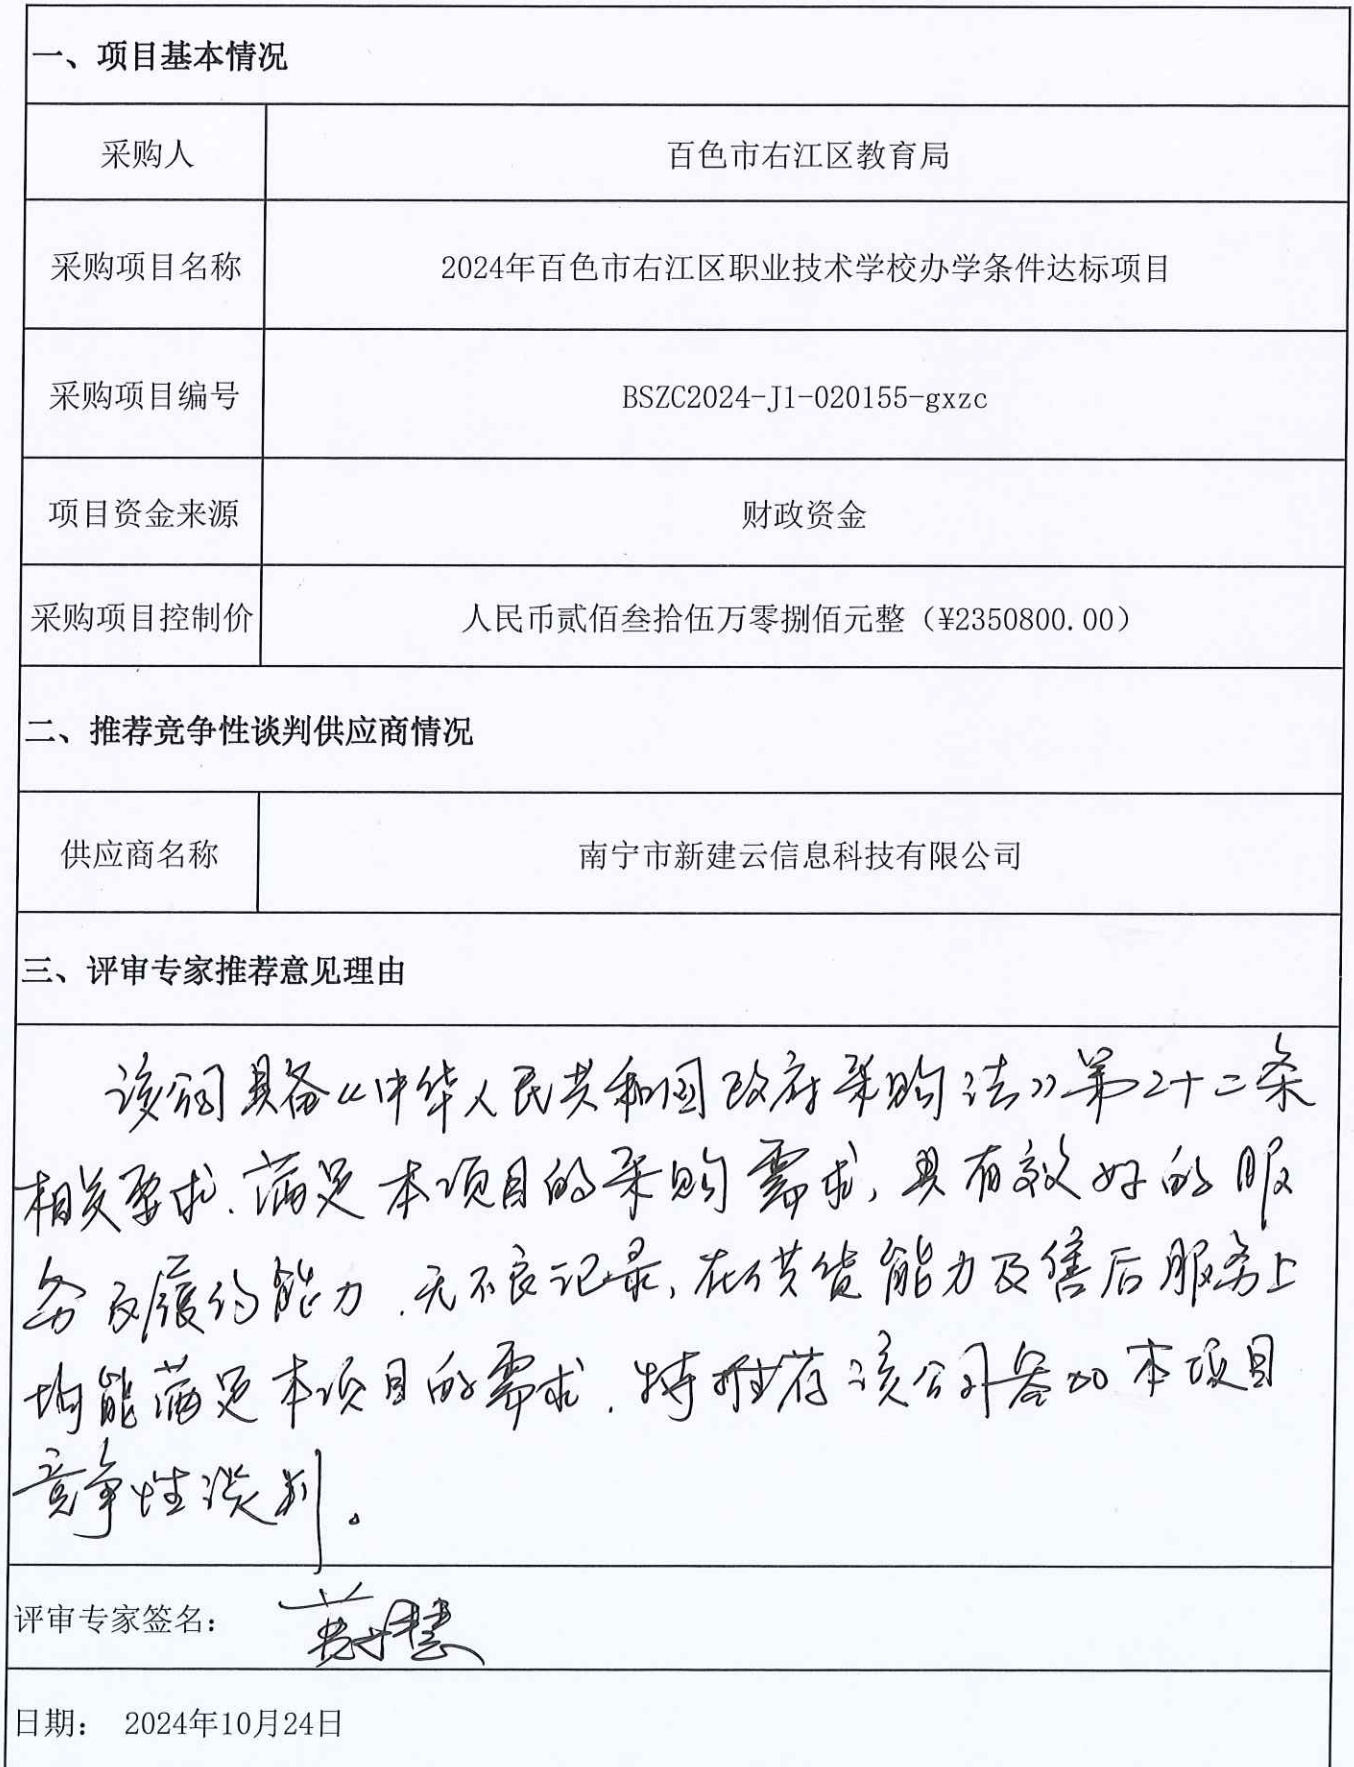 一、项目基本情况
采购人 百色市右江区教育局
采购项目名称 2024年百色市右江区职业技术学校办学条件达标项目
采购项目编号 BSZC2024-J1-020155-gxzc
项目资金来源 财政资金
采购项目控制价 人民币贰佰叁拾伍万零捌佰元整（¥2350800.00）
二、推荐竞争性谈判供应商情况
供应商名称 南宁市新建云信息科技有限公司
三、评审专家推荐意见理由
该公司具备《中华人民共和国政府采购法》第二十二条
相关要求，满足本项目的采购需求，具有较好的服
务及履约能力，无不良记录，在供货能力及售后服务上
均能满足本项目的需求，特推荐该公司参加本项目
竞争性谈判。
评审专家签名：
日期： 2024年10月24日